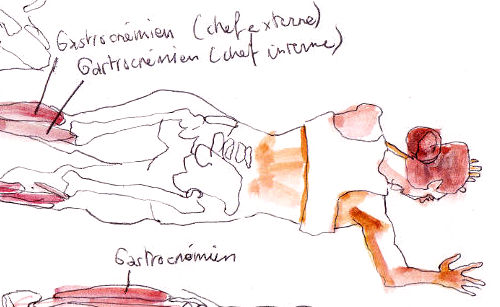 Gastrocnémien (chef externe)
Gastrocnémien (chef interne)
Gastrocnémien